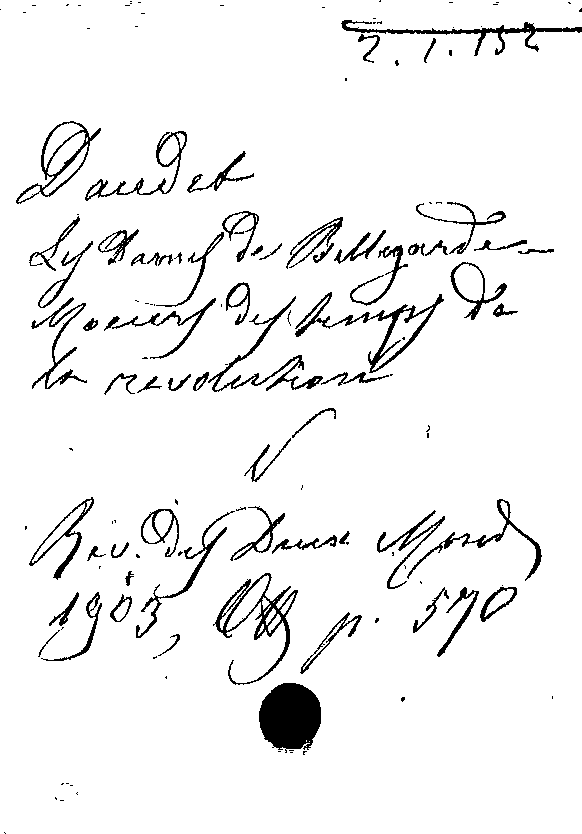 2.1.152
Daudet
Les Dames de Bellegarde
Moeurs des temps de
la revolution
Rev. des Deux Mond
1903, p. 570